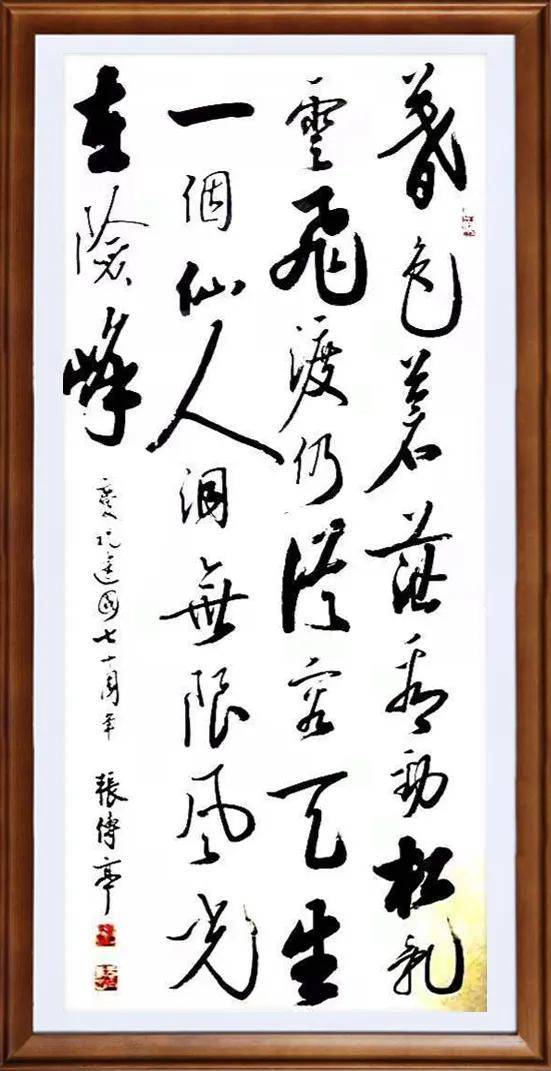 暮色蒼茫看勁松亂
雲飛渡仍從容天生
一個仙人洞無限風光
在險峰
慶祝建國七十周年
張傳亭